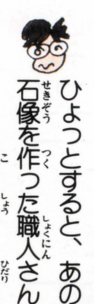 ひょっとすると、あの
石像を作った職人さん
せきぞう
つく
しょくにん
こ
しょう
ひだり